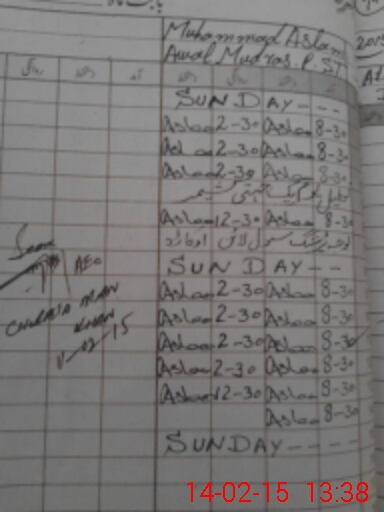 Muhammad Aslam
Awal Mudras. P.ST
2015
روانگی دستخط آمد دستخط روانگی دستخط آمد
SUNDAY - - - -
Aslam 2-30 Aslam 8-30
Aslam 2-30 Aslam 8-30
Aslam 2-30 Aslam 8-30
تعطیل یوم یکجہتی کشمیر
Aslam 12-30 Aslam 8-30
SUNDAY - - -
AEO
Aslam 2-30 Aslam 8-30
Aslam 2-30 Aslam 8-30
KHAN
Aslam 2-30 Aslam 8-30
11-02-15
Aslam 2-30 Aslam 8-30
Aslam 12-30 Aslam 8-30
Aslam 8-30
SUNDAY - - - -
14-02-15 13:38